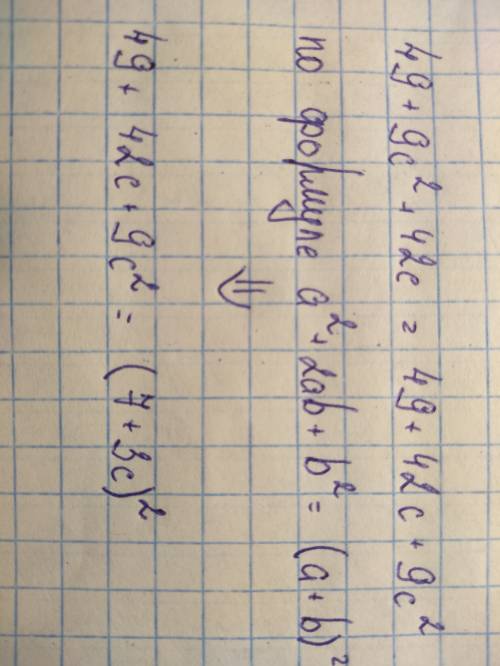 49 + 9c² + 42c = 49 + 42c + 9c²
по формуле a² + 2ab + b² = (a + b)²
⇓
49 + 42c + 9c² = (7 + 3c)²